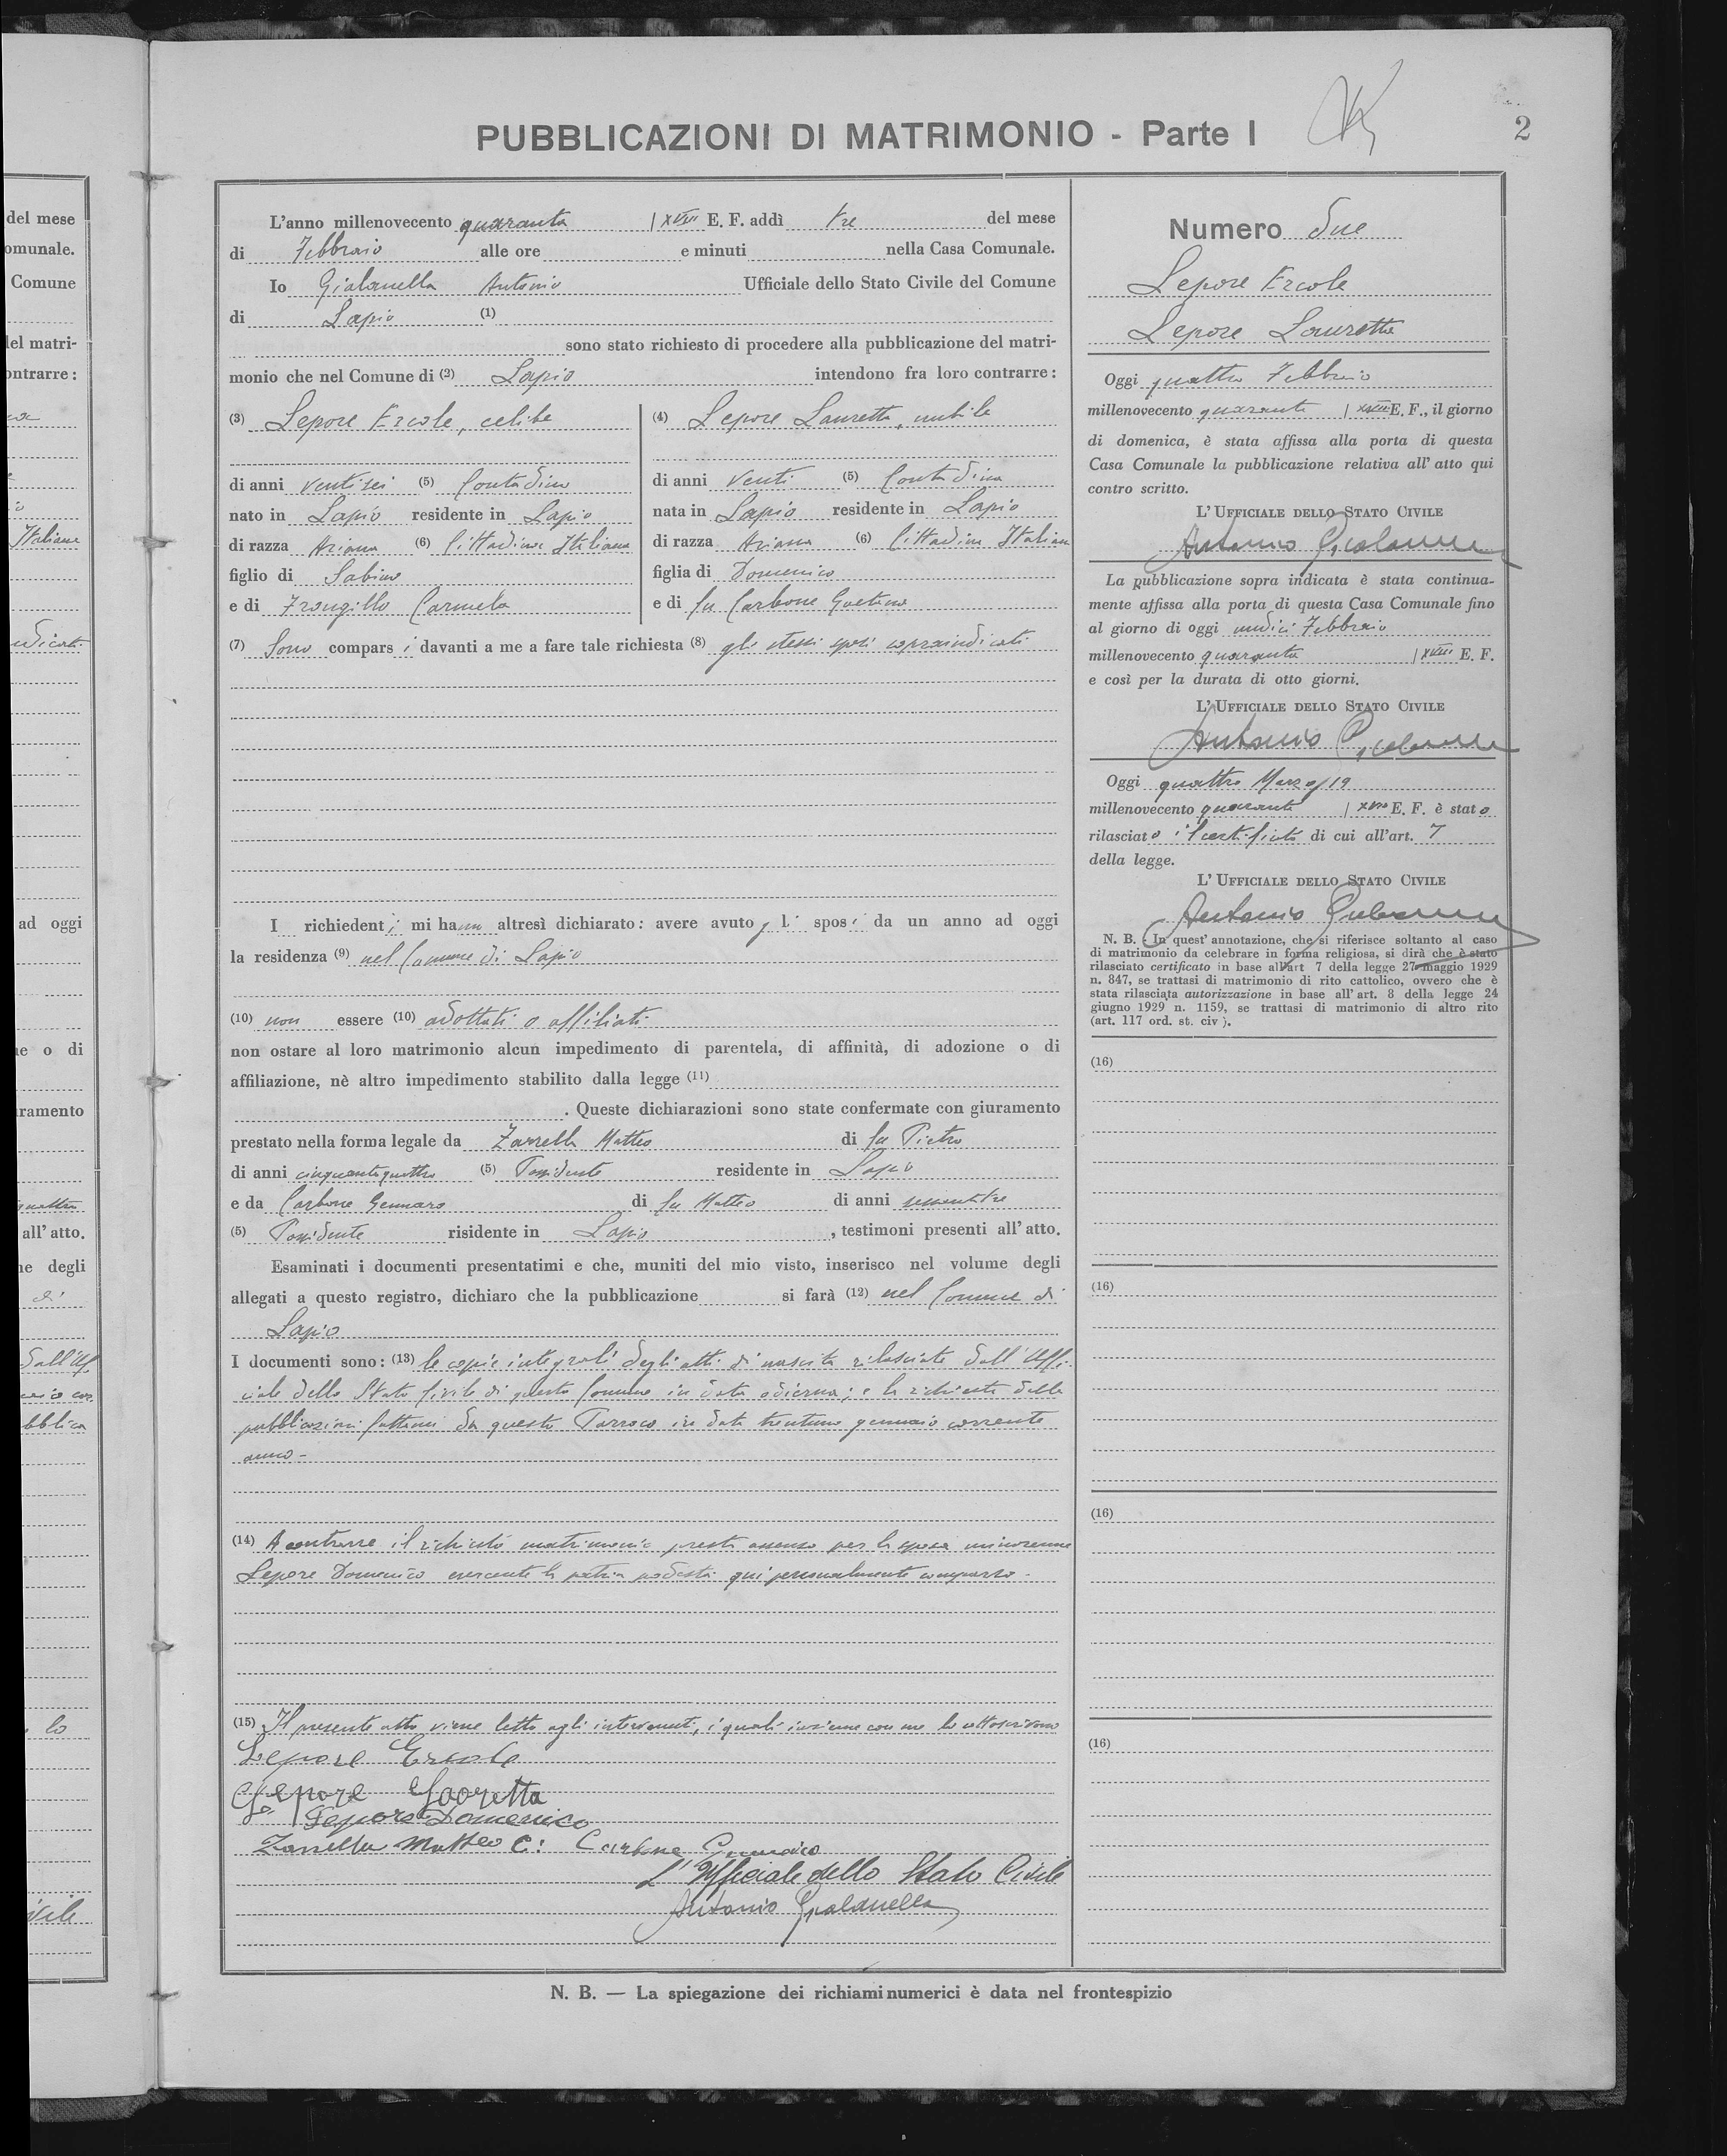 del mese
omunale.
Comune
del matri-
ontrarre :
Italiana
ndicati
ad oggi
ne o di
ramento
quattro
all' atto.
ne degli
di
dall'Uf.
bblica
lo
ivile
PUBBLICAZIONI DI MATRIMONIO - Parte I
2
L'anno millenovecento quaranta | XVIII E. F. addì tre del mese
di Febbraio alle ore e minuti nella Casa Comunale.
Io Gialanella Antonio Ufficiale dello Stato Civile del Comune
di Lapio (1)
sono stato richiesto di procedere alla pubblicazione del matri-
monio che nel Comune di (2) Lapio intendono fra loro contrarre :
(3) Lepore Ercole, celibe
di anni ventisei (5) Contadino
nato in Lapio residente in Lapio
di razza Ariana (6) Cittadino Italiano
figlio di Sabino
e di Frongillo Carmela
(4) Lepore Lauretta, nubile
di anni venti (5) Contadina
nata in Lapio residente in Lapio
di razza Ariana (6) Cittadina Italian
figlia di Domenico
e di fu Carbone Gaetana
(7) Sono compars i davanti a me a fare tale richiesta (8) gli stessi sposi sopraindicati
I richiedent i mi ha nno altresì dichiarato : avere avuto gli spos i da un anno ad oggi
la residenza (9) nel Comune di Lapio
(10) non essere (10) adottati o affiliati
non ostare al loro matrimonio alcun impedimento di parentela, di affinità, di adozione o di
affiliazione, nè altro impedimento stabilito dalla legge (11)
. Queste dichiarazioni sono state confermate con giuramento
prestato nella forma legale da Zarrella Matteo di fu Pietro
di anni cinquantaquattro (5) Possidente residente in Lapio
e da Carbone Gennaro di fu Matteo di anni sessantatre
(5) Possidente risidente in Lapio , testimoni presenti all' atto.
Esaminati i documenti presentatimi e che, muniti del mio visto, inserisco nel volume degli
allegati a questo registro, dichiaro che la pubblicazione si farà (12) nel Comune di
Lapio
I documenti sono : (13) le copie integrali degli atti di nascita rilasciate dall'Uffi-
ciale dello Stato Civile di questo Comune in data odierna; e la richiesta delle
pubblicazioni fattami da questo Parroco in data trentuno gennaio corrente
anno -
(14) A contrarre il richiesto matrimonio presta assenso per la sposa minorenne
Lepore Domenico esercente la patria podestà qui personalmente comparso -
(15) Il presente atto viene letto agli intervenuti, i quali insieme con me lo sottoscrivono
Lepore Ercole
Lepore Laoretta
Lepore Domenico
Zarrella Matteo C: Carbone Gennaro
L'Ufficiale dello Stato Civile
Antonio Gialanella
Numero due
Lepore Ercole
Lepore Lauretta
Oggi quattro Febbraio
millenovecento quaranta | XVIII E. F., il giorno
di domenica, è stata affissa alla porta di questa
Casa Comunale la pubblicazione relativa all' atto qui
contro scritto.
L' UFFICIALE DELLO STATO CIVILE
Antonio Gialanella
La pubblicazione sopra indicata è stata continua-
mente affissa alla porta di questa Casa Comunale fino
al giorno di oggi undici Febbraio
millenovecento quaranta | XVIII E. F.
e così per la durata di otto giorni.
L' UFFICIALE DELLO STATO CIVILE
Antonio Gialanella
Oggi quattro Marzo/19
millenovecento quaranta | XVIII E. F. è stat o
rilasciat o il certificato di cui all'art. 7
della legge.
L' UFFICIALE DELLO STATO CIVILE
Antonio Gialanella
N. B. - In quest' annotazione, che si riferisce soltanto al caso
di matrimonio da celebrare in forma religiosa, si dirà che è stato
rilasciato certificato in base all'art 7 della legge 27 maggio 1929
n. 847, se trattasi di matrimonio di rito cattolico, ovvero che è
stata rilasciata autorizzazione in base all' art. 8 della legge 24
giugno 1929 n. 1159, se trattasi di matrimonio di altro rito
(art. 117 ord. st. civ ).
(16)
(16)
(16)
(16)
N. B. — La spiegazione dei richiami numerici è data nel frontespizio